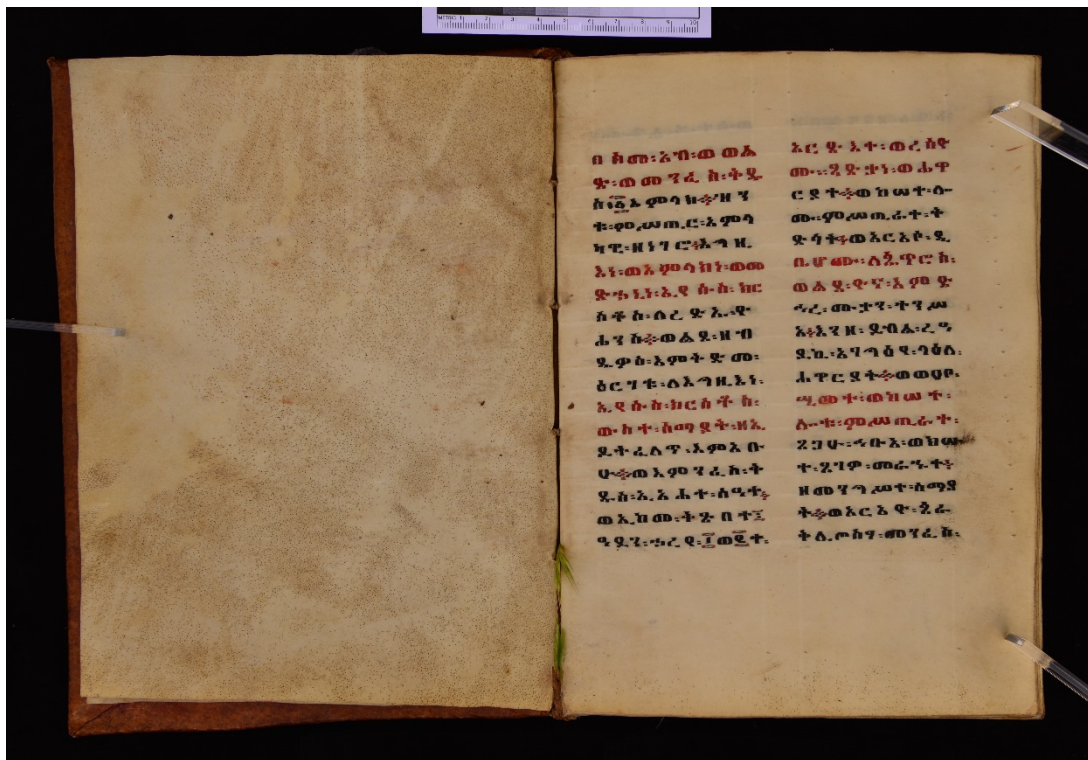 በስመ፡አብ፡ወወል
ድ፡ወመንፈስ፡ቅዱ
ስ፡፩አምላክ።ዝን
ቱ፡ምሥጢር፡አምላ
ካዊ፡ዘነገሮ፡እግዚ
እነ፡ወአምላክነ፡ወመ
ድኃኒነ፡ኢየሱስ፡ክር
ስቶስ፡ለረድኡ፡ዮ
ሐንስ።ወልደ፡ዘብ
ዴዎስ፡እምቅድመ፡
ዕርገቱ፡ለእግዚእነ፡
ኢየሱስ፡ክርስቶስ፡
ውስተ፡ሰማያት፡ዘኢ
ይትፈለጥ፡እምአቡ
ሁ።ወእምንፈስ፡ቅ
ዱስ፡ኢአሐተ፡ሰዓተ፡
ወኢከመ፡ቅጽበተ፡
ዓይን፡ኃረየ፡፲ወ፪ተ፡
አርድእተ፡ወረሰዮ
ሙ፡፡ኄድታነ፡ወሐዋ
ርያተ።ወከሠተ፡ሎ
ሙ፡ምሥጢራተ፡ቅ
ድሳት።ወአርአዮ፡ዲ
ቤሆሙ፡ለጴጥሮስ፡
ወልደ፡ዮና፡እምድ
ኅረ፡ሙታን፡ተንሥ
አ፡እንዘ፡ይብል፡ረዓ
ይኬ፡አባግዕየ፡ሳዕለ፡
ሐዋርያት።ወወሀቦ፡
ሢመተ፡ወከሠተ፡
ሎቱ፡ምሥጢራተ፡
ጸጋሁ፡ኅቡአ፡ወከሠ
ተ፡ጸገዎ፡መራኁተ፡
ዘመንግሥተ፡ሰማያ
ት።ወአርአዮ፡ጰራ
ቅሊጦስሃ፡መንፈስ፡